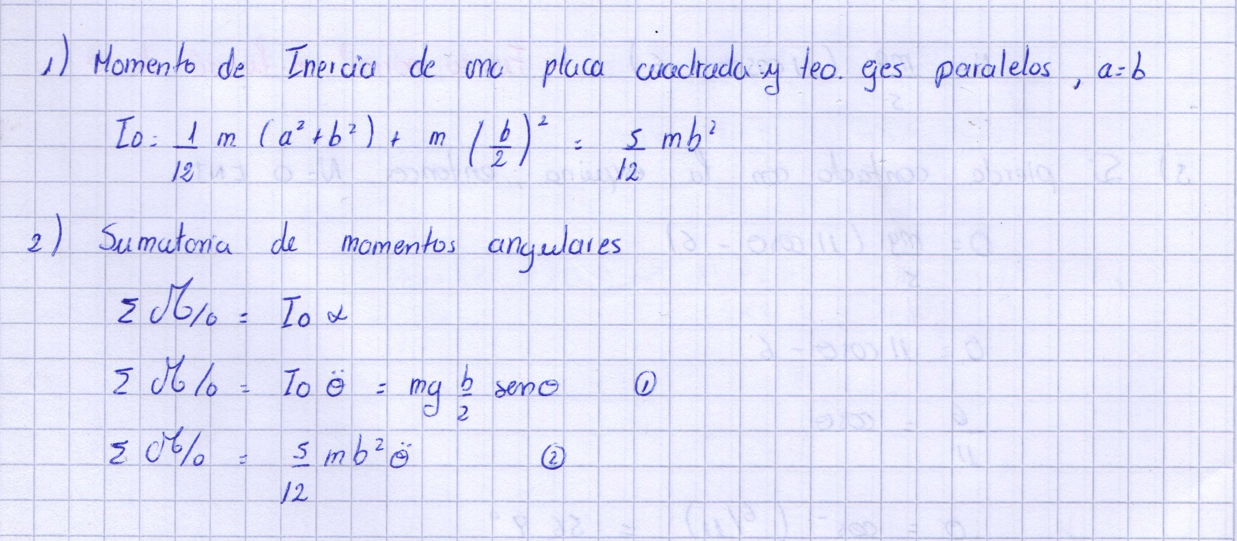 1) Momento de Inercia de una placa cuadrada y teo. ejes paralelos, a=b
Io = 1/12 m (a² + b²) + m (b/2)² = 5/12 mb²
2) Sumatoria de momentos angulares
Σ M/o = Io α
Σ M/o = Io θ̈ = mg b/2 senθ ①
Σ M/o = 5/12 mb² θ̈ ②